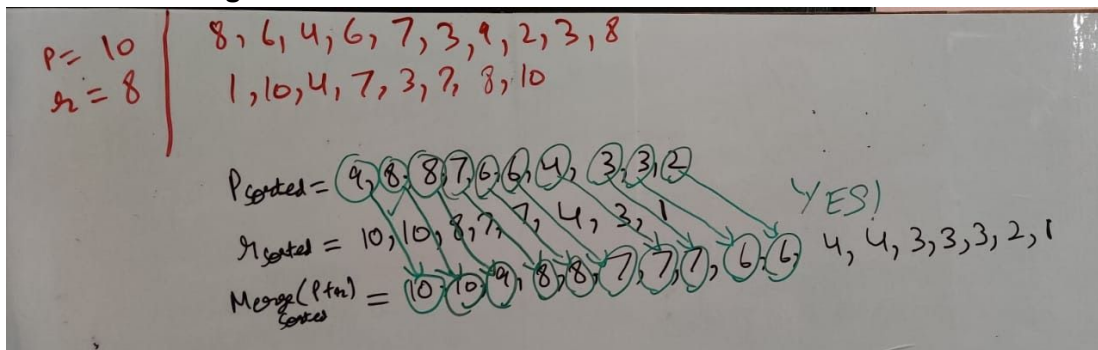 P = 10
r = 8
8, 6, 4, 6, 7, 3, 9, 2, 3, 8
1, 10, 4, 7, 3, 7, 8, 10
P sorted = 9, 8, 8, 7, 6, 6, 4, 3, 3, 2
r sorted = 10, 10, 8, 7, 7, 4, 3, 1
YES!
Merge (P+r) sorted = 10, 10, 9, 8, 8, 7, 7, 7, 6, 6, 4, 4, 3, 3, 3, 2, 1